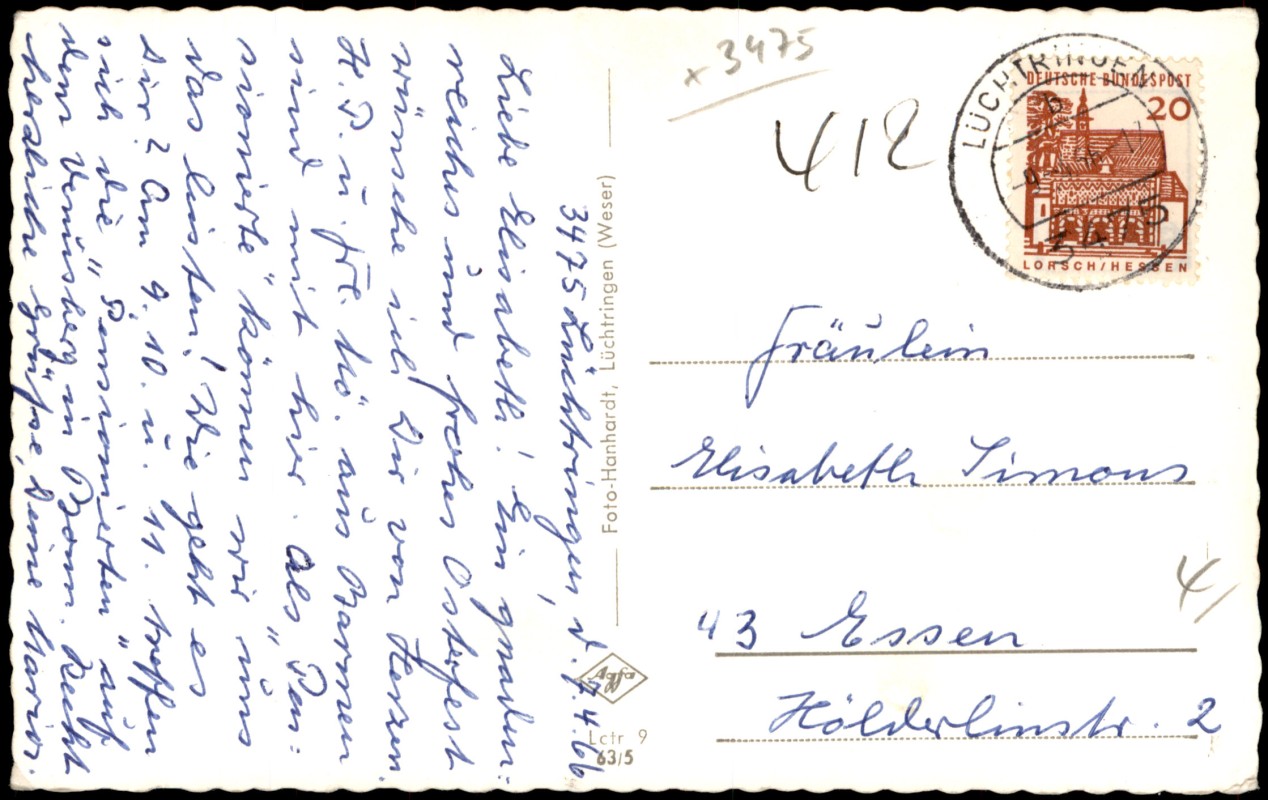 3475 Lüchtringen, d. 7.4.66
Liebe Elisabeth! Ein gnaden-
reiches und frohes Osterfest
wünsche ich Dir von Herzen.
H. P. u. Fr. Mö. aus Barmen
sind mit hier. Als „Pen-
sionierte" können wir uns
das leisten! Wie geht es
Dir? Am 9. 10. u. 11. treffen
sich die „Pensionierten" auf
dem Venusberg in Bonn. Recht
herzliche Grüße, Deine Marion.
Foto-Hanhardt, Lüchtringen (Weser)
Agfa
Lctr 9
63/5
x 3475
412
LÜCHTRINGEN
b
3475
DEUTSCHE BUNDESPOST
20
LORSCH/HESSEN
Fräulein
Elisabeth Simons
4/
43 Essen
Hölderlinstr. 2